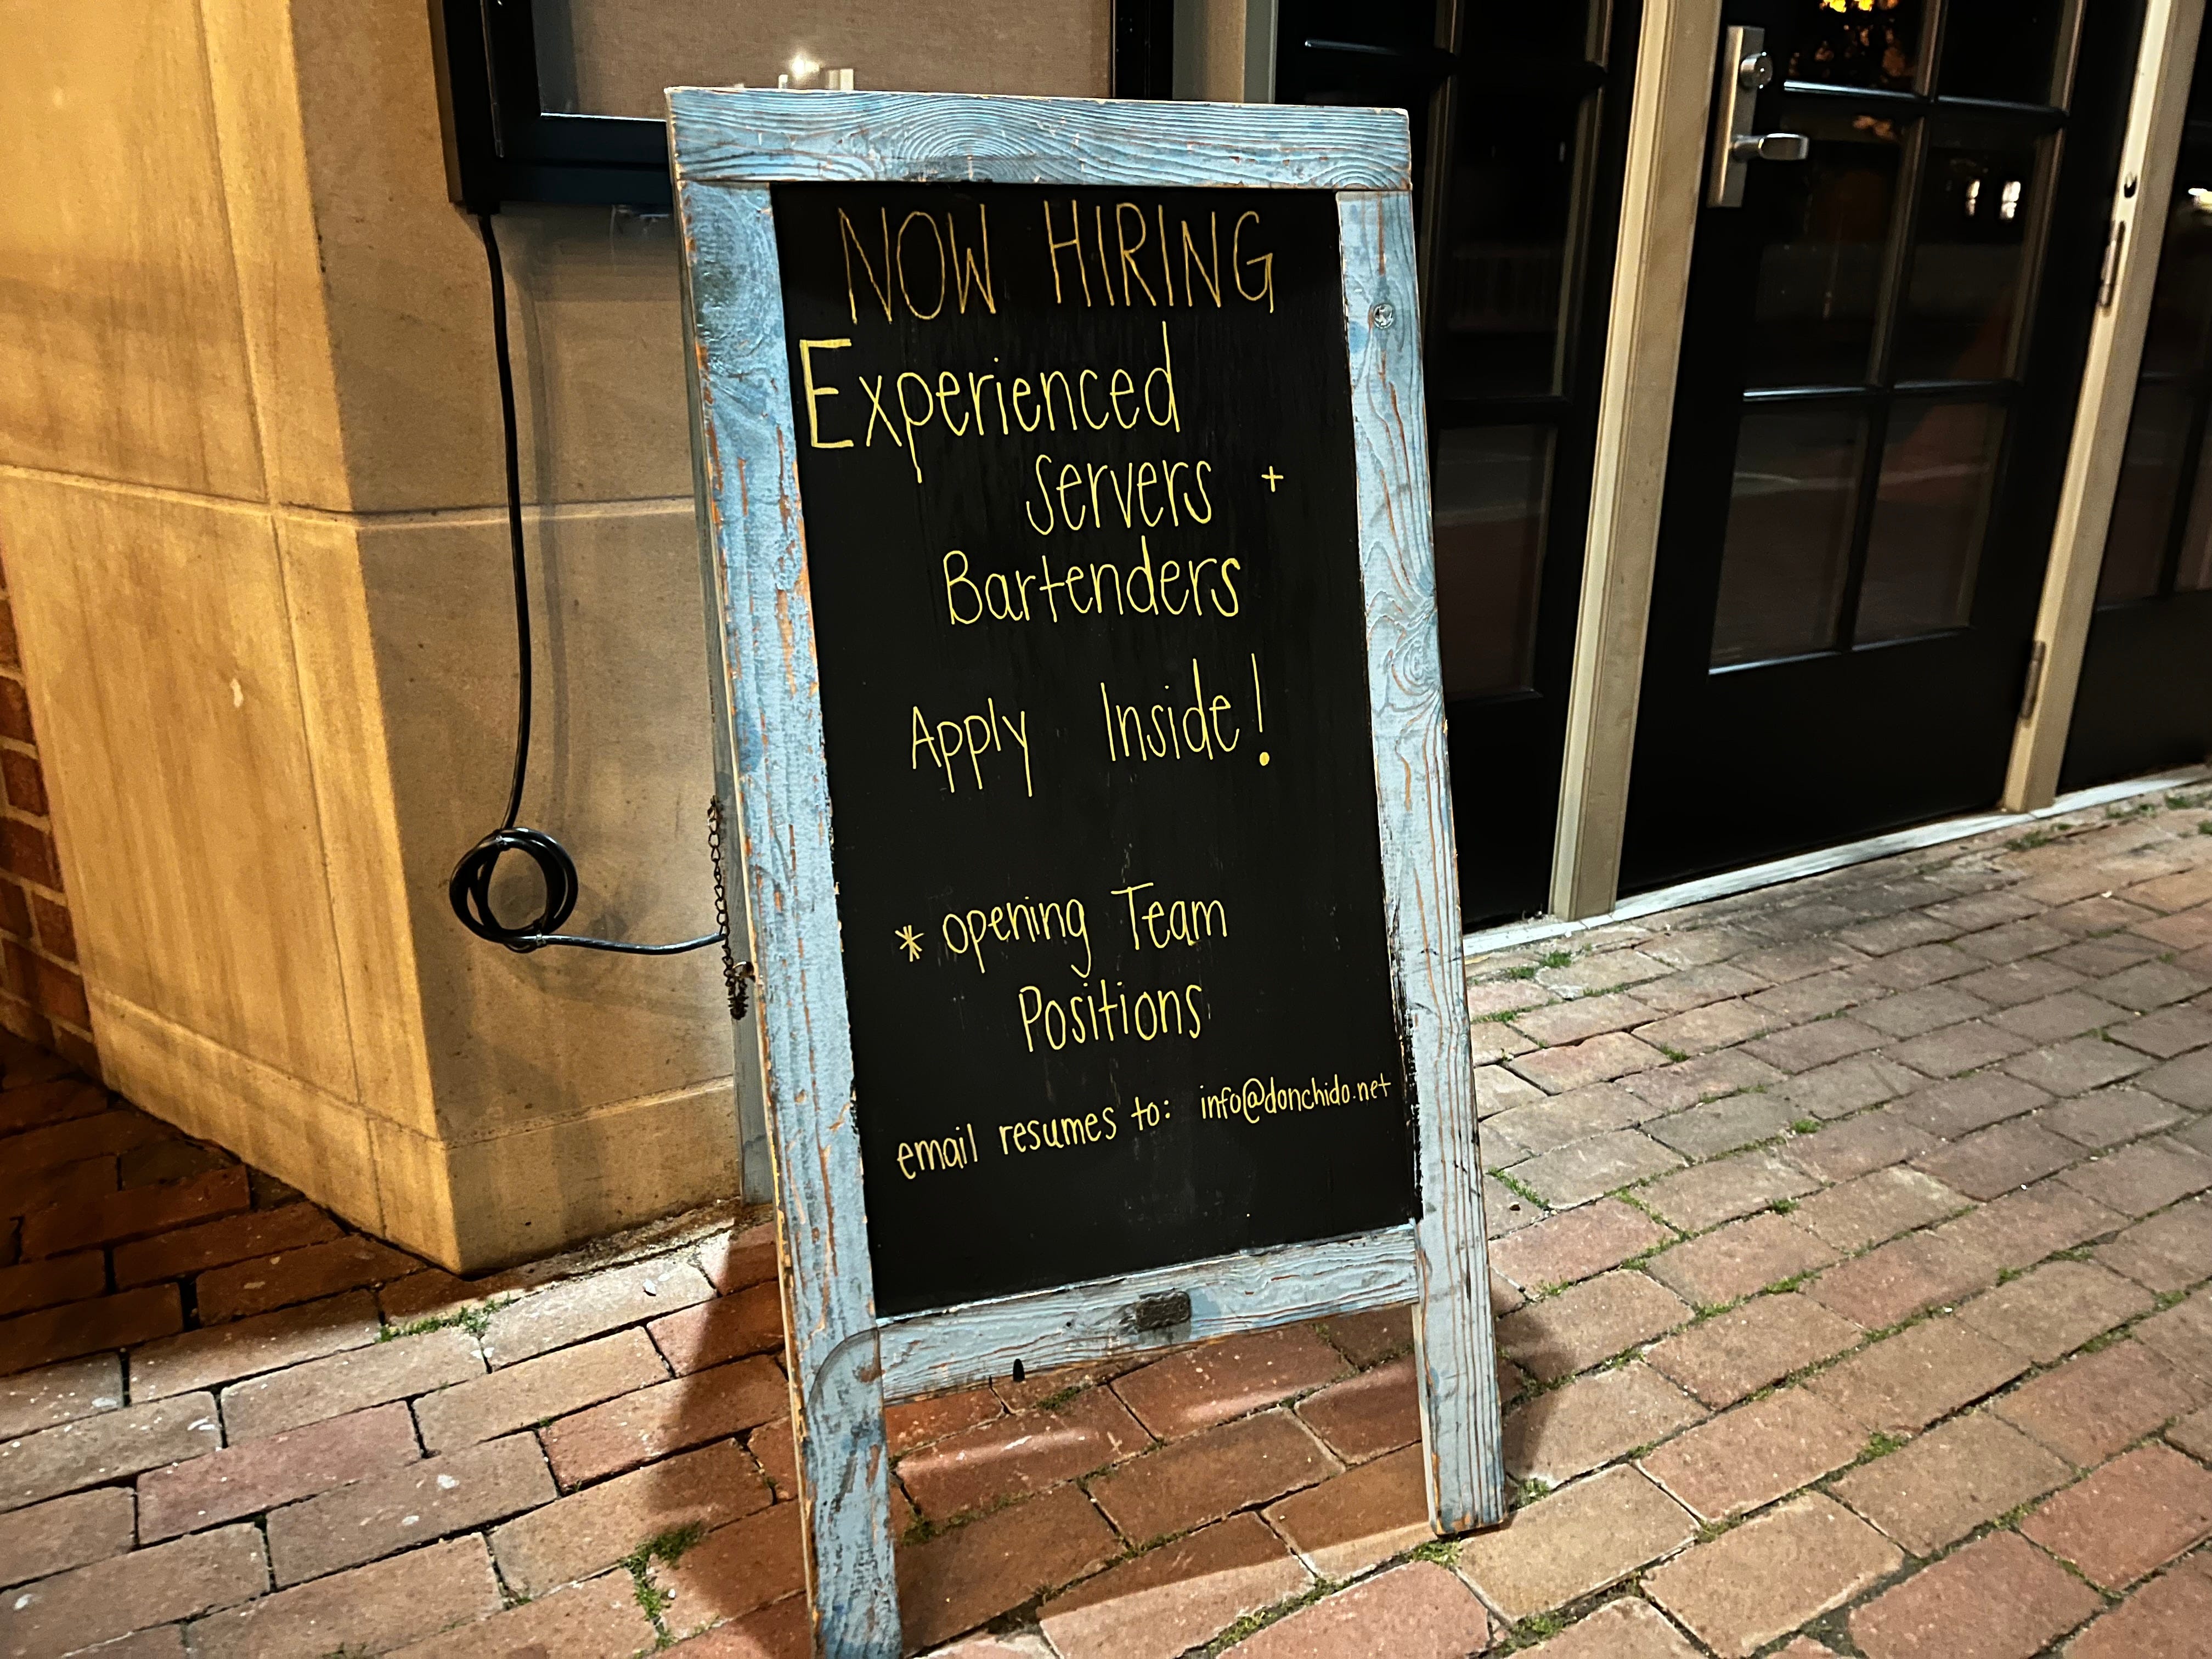 NOW HIRING
Experienced
servers +
Bartenders
Apply Inside!
* opening Team
Positions
email resumes to: info@donchido.net